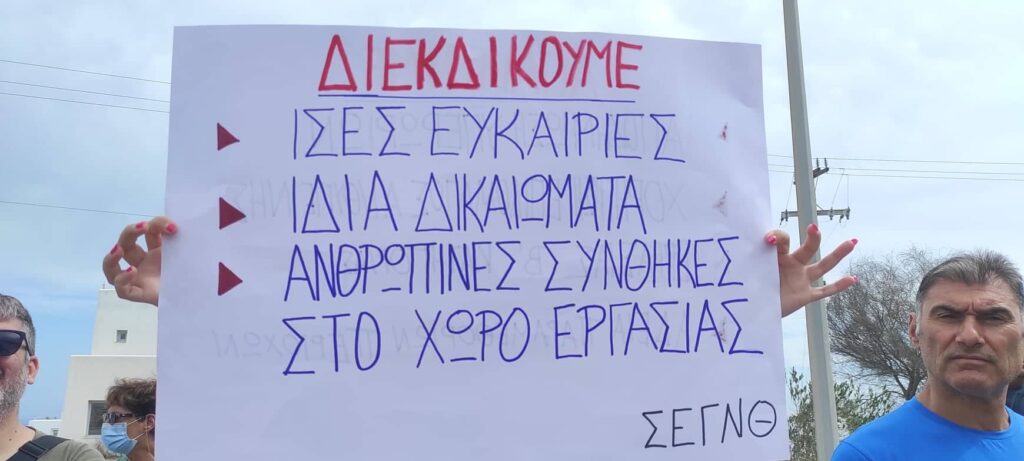 ΔΙΕΚΔΙΚΟΥΜΕ
ΙΣΕΣ ΕΥΚΑΙΡΙΕΣ
ΙΔΙΑ ΔΙΚΑΙΩΜΑΤΑ
ΑΝΘΡΩΠΙΝΕΣ ΣΥΝΘΗΚΕΣ
ΣΤΟ ΧΩΡΟ ΕΡΓΑΣΙΑΣ
ΣΕΓΝΘ